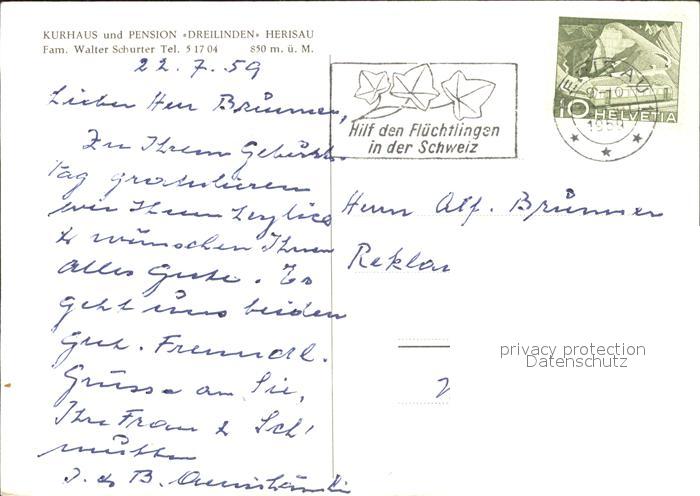 KURHAUS und PENSION «DREILINDEN» HERISAU
Fam. Walter Schurter Tel. 5 17 04 850 m. ü. M.
22.7.59
Lieber Herr Brunner,
Zu Ihrem Geburts-
tag gratulieren
wir Ihnen herzlich
& wünschen Ihnen
alles Gute. Es
geht uns beiden
gut. Freundl.
Grüsse an Sie,
Ihre Frau & Sch'
mutter
J. & B.
Hilf den Flüchtlingen
in der Schweiz
1959
10 HELVETIA
Herrn Alf. Brunner
Reklar
privacy protection
Datenschutz